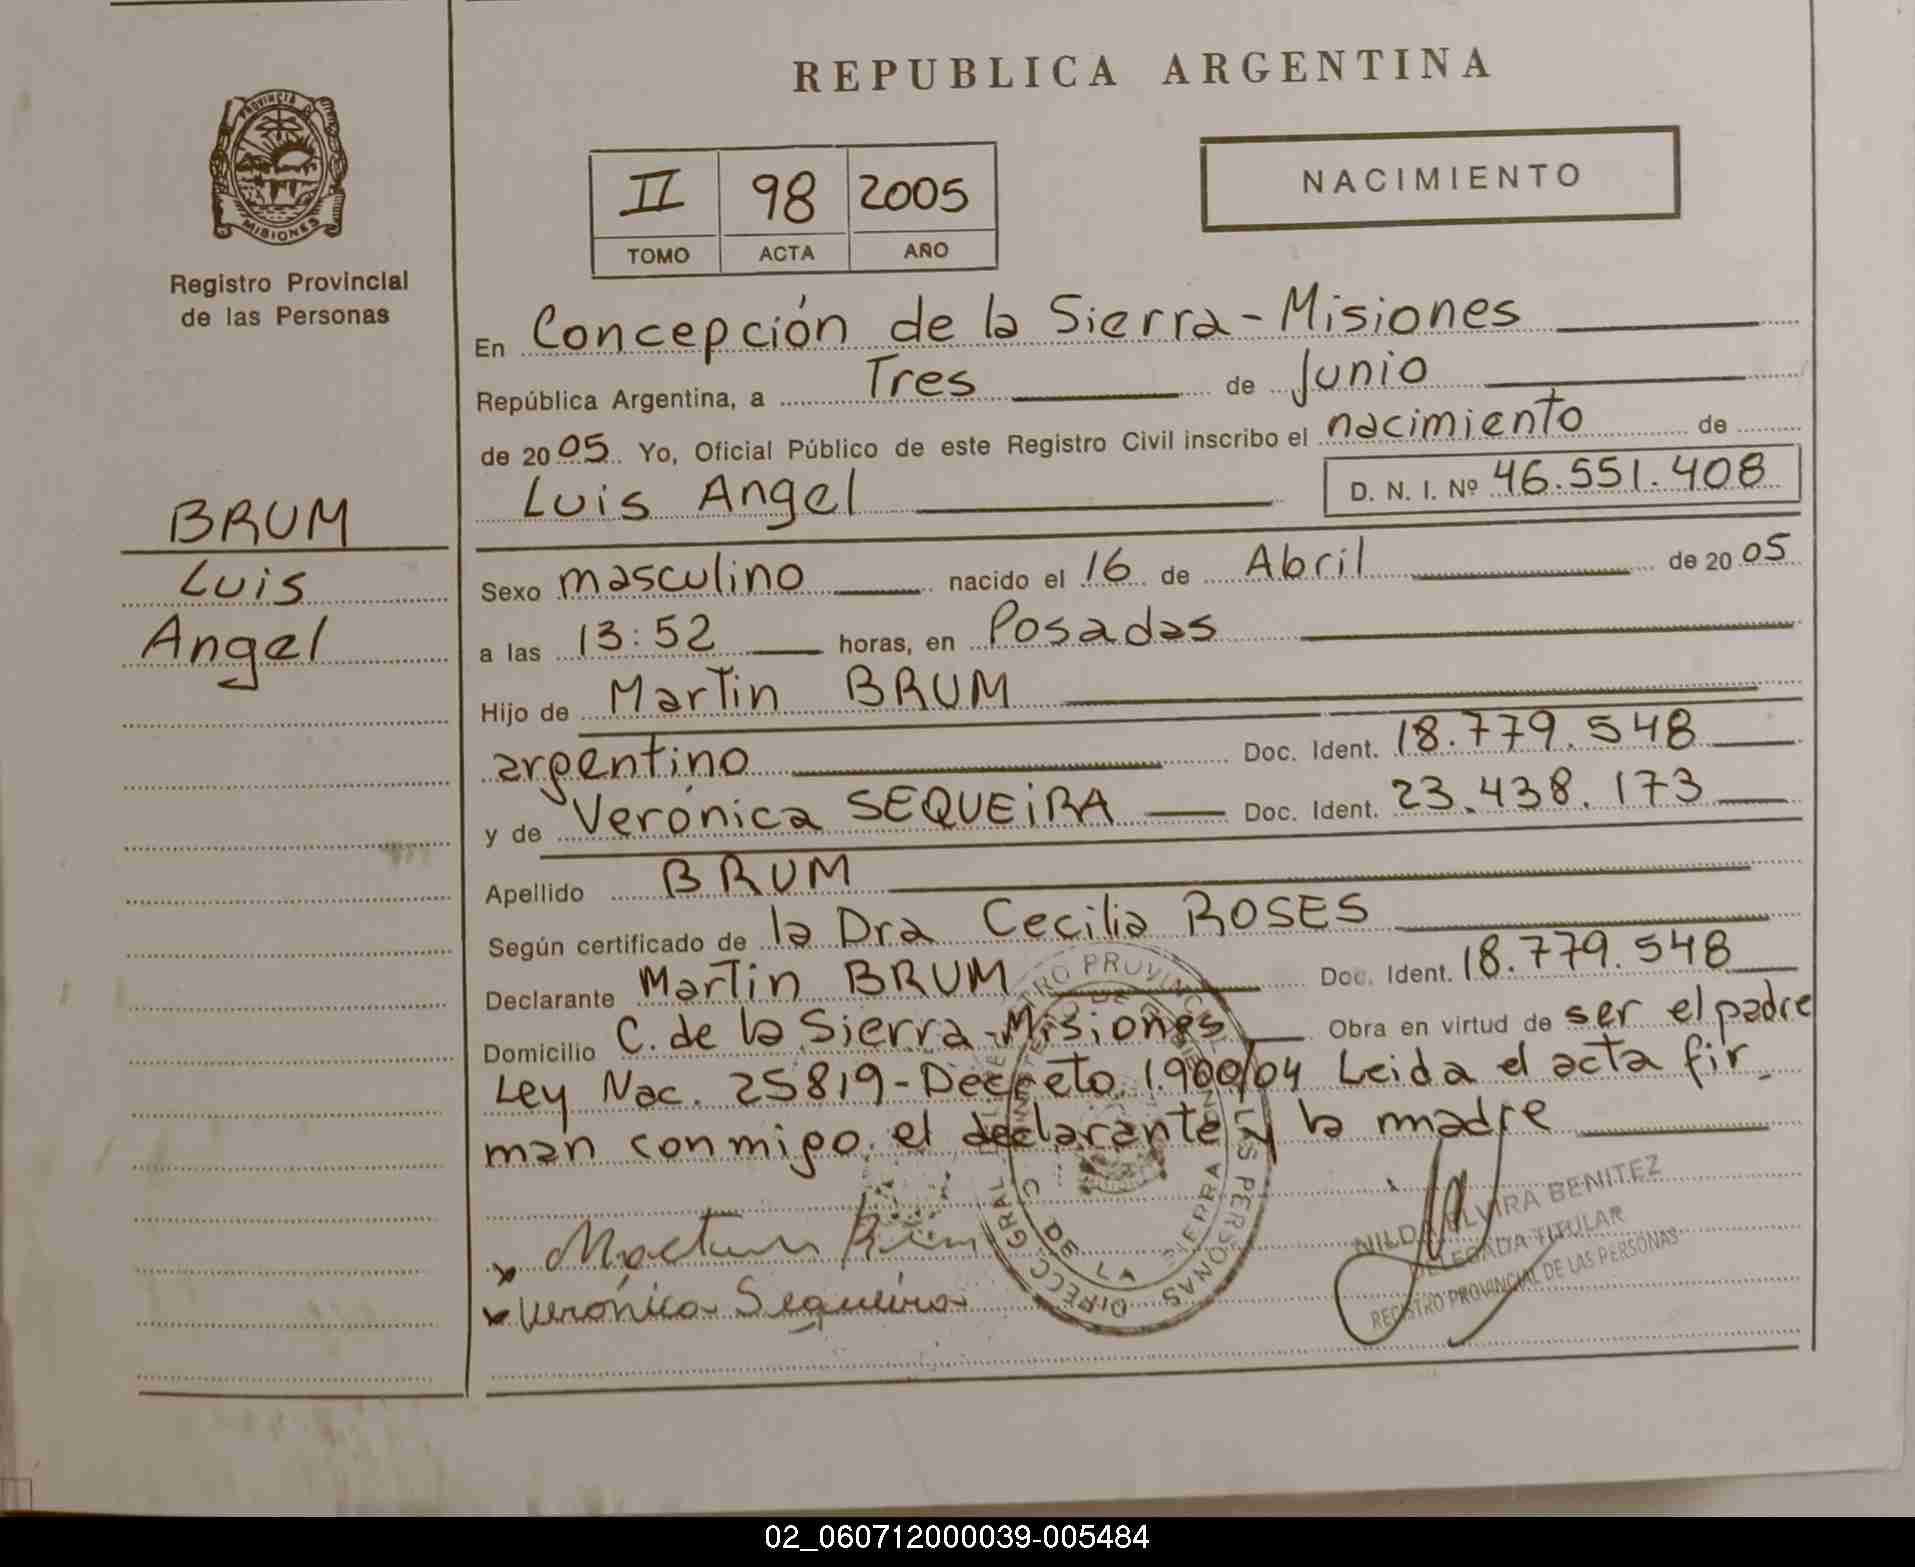 PROVINCIA DE
MISIONES
Registro Provincial
de las Personas
BRUM
Luis
Angel
REPUBLICA ARGENTINA
II 98 2005
TOMO ACTA AÑO
NACIMIENTO
En Concepción de la Sierra - Misiones
República Argentina, a Tres de Junio
de 2005 Yo, Oficial Público de este Registro Civil inscribo el nacimiento de
Luis Angel D. N. I. Nº 46.551.408
Sexo masculino nacido el 16 de Abril de 2005
a las 13:52 horas, en Posadas
Hijo de Martin BRUM
argentino Doc. Ident. 18.779.548
y de Verónica SEQUEiRA Doc. Ident. 23.438.173
Apellido BRUM
Según certificado de la Dra Cecilia ROSES
Declarante Martin BRUM Doc. Ident. 18.779.548
Domicilio C. de la Sierra - Misiones Obra en virtud de ser el padre
Ley Nac. 25819 - Decreto 1.900/04 Leida el acta fir_
man conmigo el declarante y la madre
Verónica Sequeira
NILDA ELVIRA BENITEZ
DELEGADA TITULAR
REGISTRO PROVINCIAL DE LAS PERSONAS
02_060712000039-005484